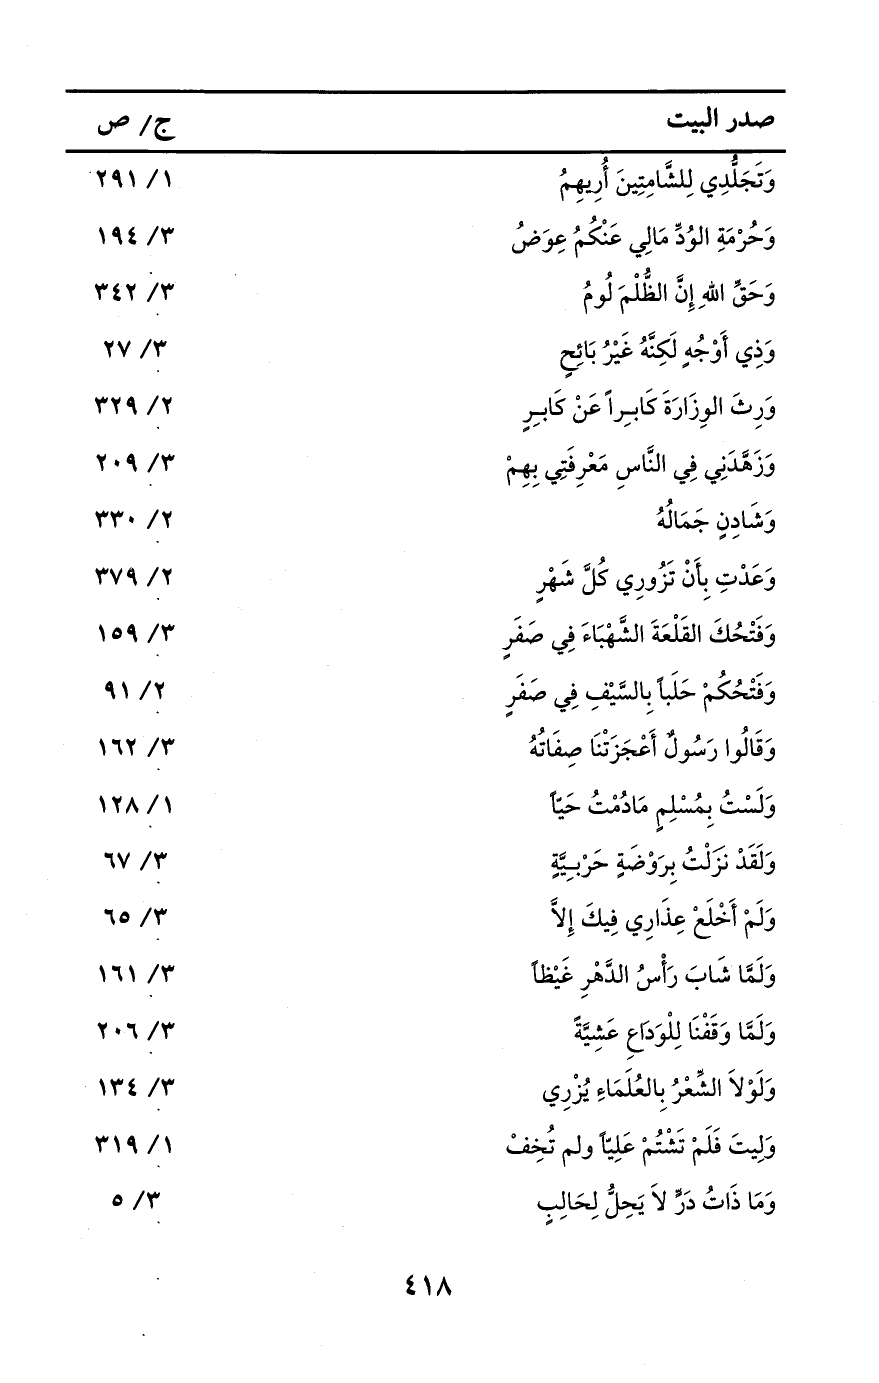 صدر البيت ج/ ص
وَتَجَلُّدِي لِلشَّامِتِينَ أُرِيهِمُ ١/ ٢٩١
وَحُرْمَةِ الوُدِّ مَالِي عَنْكُمُ عِوَضُ ٣/ ١٩٤
وَحَقِّ اللهِ إِنَّ الظُّلْمَ لُومُ ٣/ ٣٤٢
وَذِي أَوْجُهٍ لَكِنَّهُ غَيْرُ بَائِحٍ ٣/ ٢٧
وَرِثَ الوِزَارَةَ كَابِراً عَنْ كَابِرٍ ٢/ ٣٢٩
وَزَهَّدَنِي فِي النَّاسِ مَعْرِفَتِي بِهِمْ ٣/ ٢٠٩
وَشَادِنٍ جَمَالُهُ ٢/ ٣٣٠
وَعَدْتِ بِأَنْ تَزُورِي كُلَّ شَهْرٍ ٢/ ٣٧٩
وَفَتْحُكَ القَلْعَةَ الشَّهْبَاءَ فِي صَفَرٍ ٣/ ١٥٩
وَفَتْحُكُمْ حَلَباً بِالسَّيْفِ فِي صَفَرٍ ٢/ ٩١
وَقَالُوا رَسُولٌ أَعْجَزَتْنَا صِفَاتُهُ ٣/ ١٦٢
وَلَسْتُ بِمُسْلِمٍ مَادُمْتُ حَيّاً ١/ ١٢٨
وَلَقَدْ نَزَلْتُ بِرَوْضَةٍ حَرْبِيَّةٍ ٣/ ٦٧
وَلَمْ أَخْلَعْ عِذَارِي فِيكَ إِلاَّ ٣/ ٦٥
وَلَمَّا شَابَ رَأْسُ الدَّهْرِ غَيْظاً ٣/ ١٦١
وَلَمَّا وَقَفْنَا لِلْوَدَاعِ عَشِيَّةً ٣/ ٢٠٦
وَلَوْلاَ الشِّعْرُ بِالعُلَمَاءِ يُزْرِي ٣/ ١٣٤
وَلِيتَ فَلَمْ تَشْتُمْ عَلِيّاً ولم تُخِفْ ١/ ٣١٩
وَمَا ذَاتُ دَرٍّ لاَ يَحِلُّ لِحَالِبٍ ٣/ ٥
٤١٨